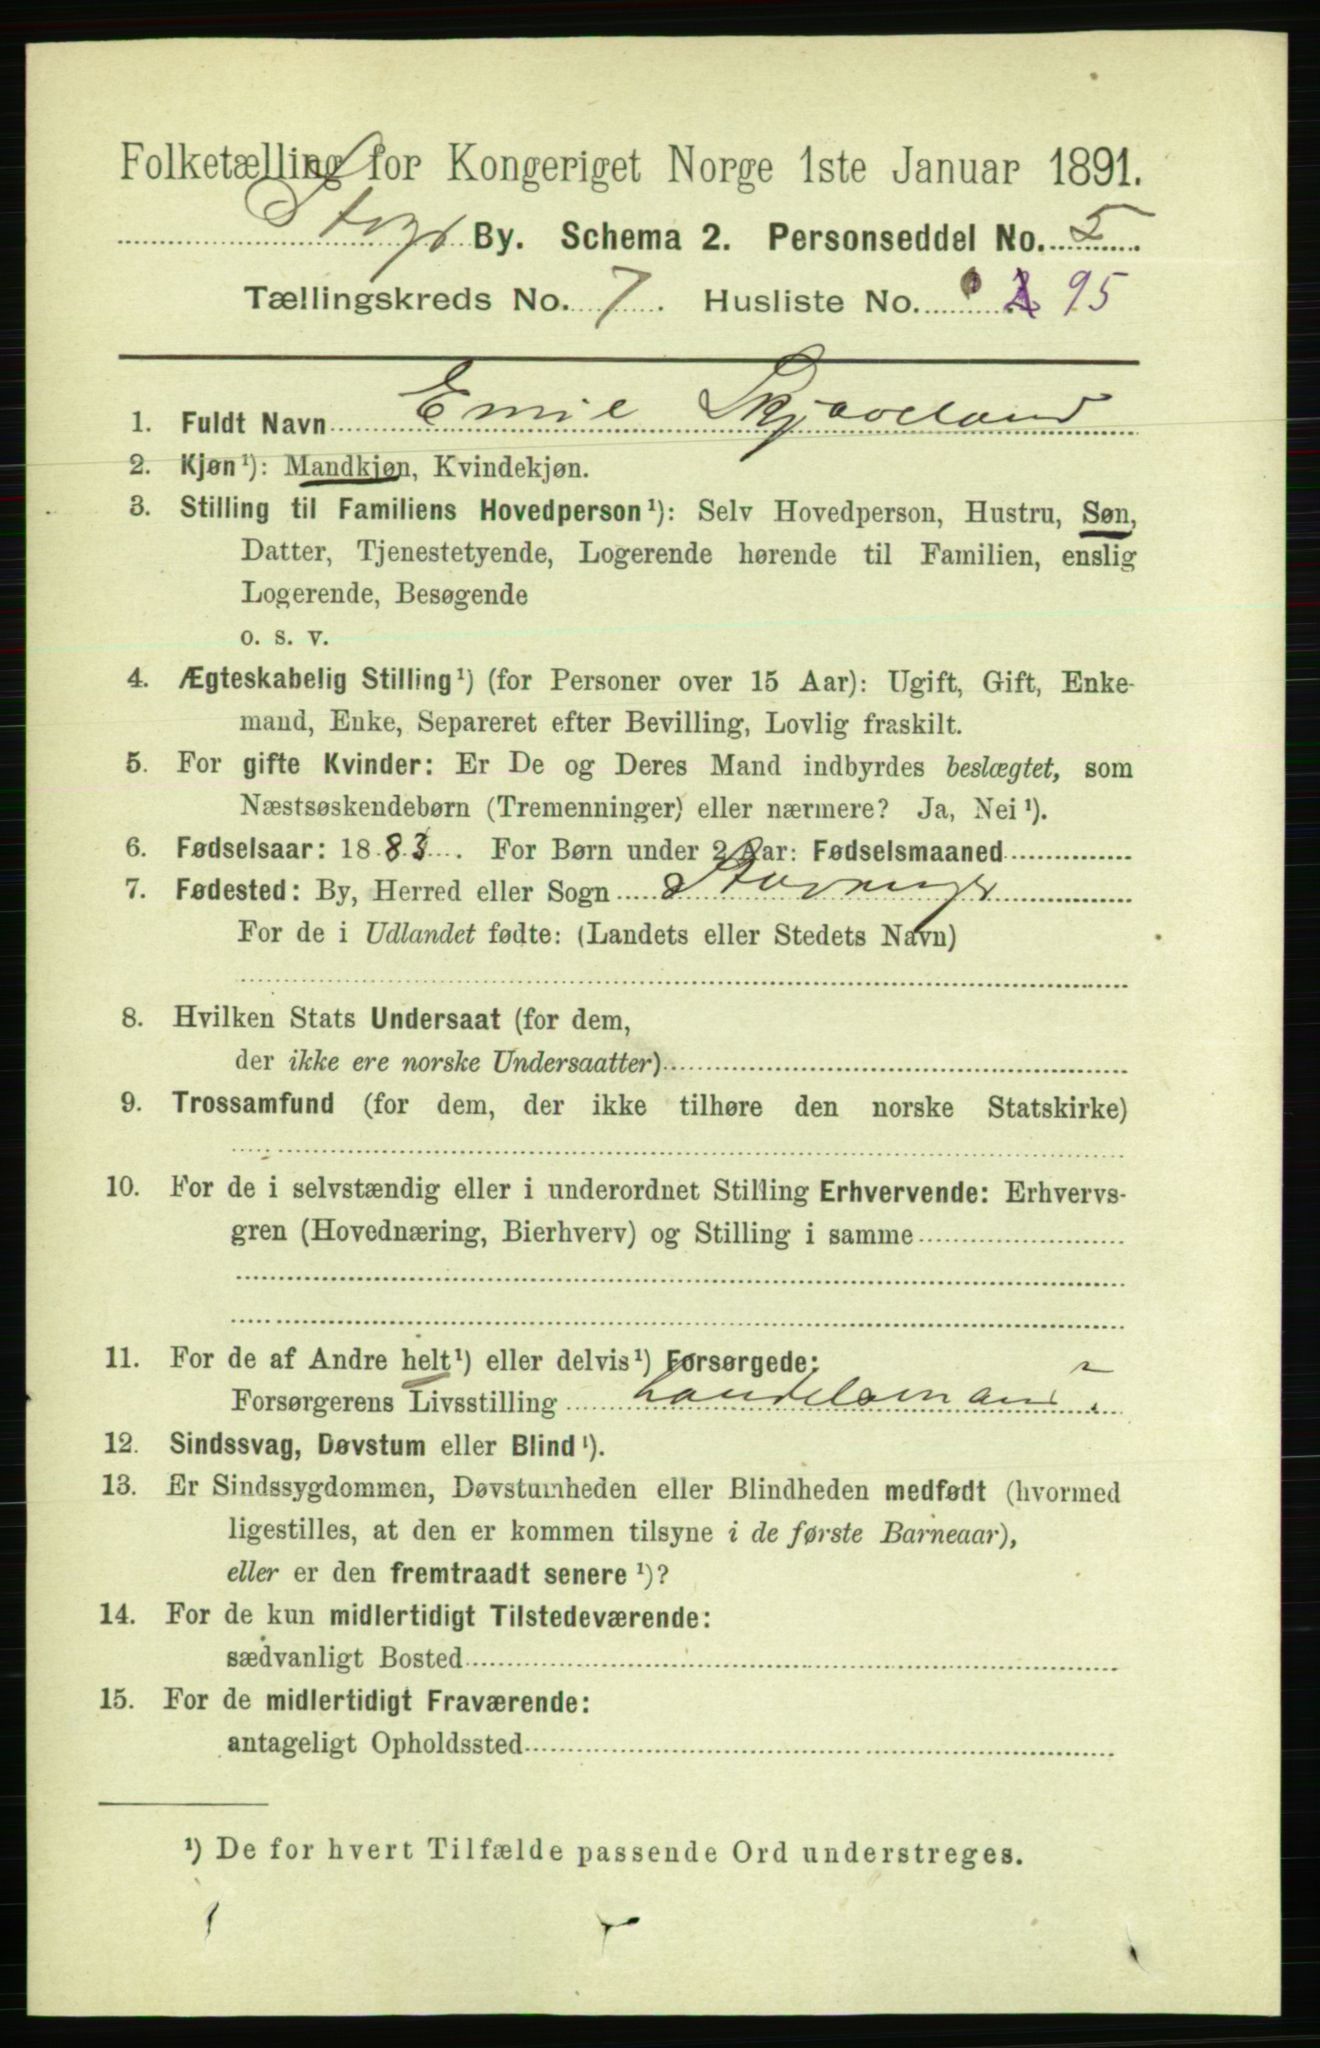 Folketælling for Kongeriget Norge 1ste Janvar 1891.
Stvgr By. Schema 2. Personseddel No. 5
Tællingskreds No. 7. Husliste No. 95
1. Fuldt Navn Emil Skjæveland
2. Kjøn¹): Mandkjøn, Kvindekjøn.
3. Stilling til Familiens Hovedperson¹): Selv Hovedperson, Hustru, Søn,
Datter, Tjenestetyende, Logerende hørende til Familien, enslig
Logerende, Besøgende
o. s. v.
4. Ægteskabelig Stilling¹) (for Personer over 15 Aar): Ugift, Gift, Enke-
mand, Enke, Separeret efter Bevilling, Lovlig fraskilt.
5. For gifte Kvinder: Er De og Deres Mand indbyrdes beslægtet, som
Næstsøskendebørn (Tremenninger) eller nærmere? Ja, Nei¹).
6. Fødselsaar: 1883. For Børn under 2 Aar: Fødselsmaaned
7. Fødested: By, Herred eller Sogn Stavanger
For de i Udlandet fødte: (Landets eller Stedets Navn)
8. Hvilken Stats Undersaat (for dem,
der ikke ere norske Undersaatter)
9. Trossamfund (for dem, der ikke tilhøre den norske Statskirke)
10. For de i selvstændig eller i underordnet Stilling Erhvervende: Erhvervs-
gren (Hovednæring, Bierhverv) og Stilling i samme
11. For de af Andre helt¹) eller delvis¹) Forsørgede:
Forsørgerens Livsstilling Handelsmand
12. Sindssvag, Døvstum eller Blind¹).
13. Er Sindssygdommen, Døvstumheden eller Blindheden medfødt (hvormed
ligestilles, at den er kommen tilsyne i de første Barneaar),
eller er den fremtraadt senere¹)?
14. For de kun midlertidigt Tilstedeværende:
sædvanligt Bosted
15. For de midlertidigt Fraværende:
antageligt Opholdssted
¹) De for hvert Tilfælde passende Ord understreges.